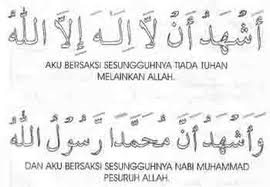 أَشْهَدُ أَنْ لَا إِلٰهَ إِلَّا اللّٰهُ
AKU BERSAKSI SESUNGGUHNYA TIADA TUHAN
MELAINKAN ALLAH.
وَأَشْهَدُ أَنَّ مُحَمَّدًا رَسُوْلُ اللّٰهُ
DAN AKU BERSAKSI SESUNGGUHNYA NABI MUHAMMAD
PESURUH ALLAH.